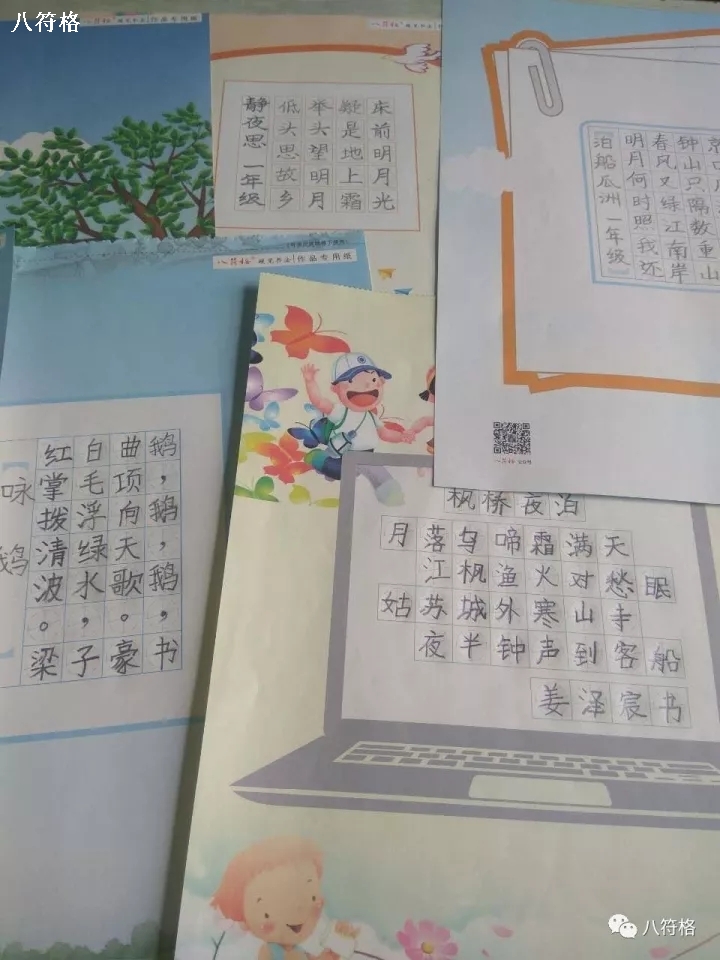 八符格
八符格 硬笔书法 作品专用纸
床前明月光
疑是地上霜
举头望明月
低头思故乡
静夜思 一年级
钟山只隔数重山
春风又绿江南岸
明月何时照我还
泊船瓜洲 一年级
八符格 硬笔书法 作品专用纸
鹅，鹅，鹅，
曲项向天歌。
白毛浮绿水，
红掌拨清波。
咏鹅
梁子豪书
枫桥夜泊
月落乌啼霜满天
江枫渔火对愁眠
姑苏城外寒山寺
夜半钟声到客船
姜泽宸书
八符格